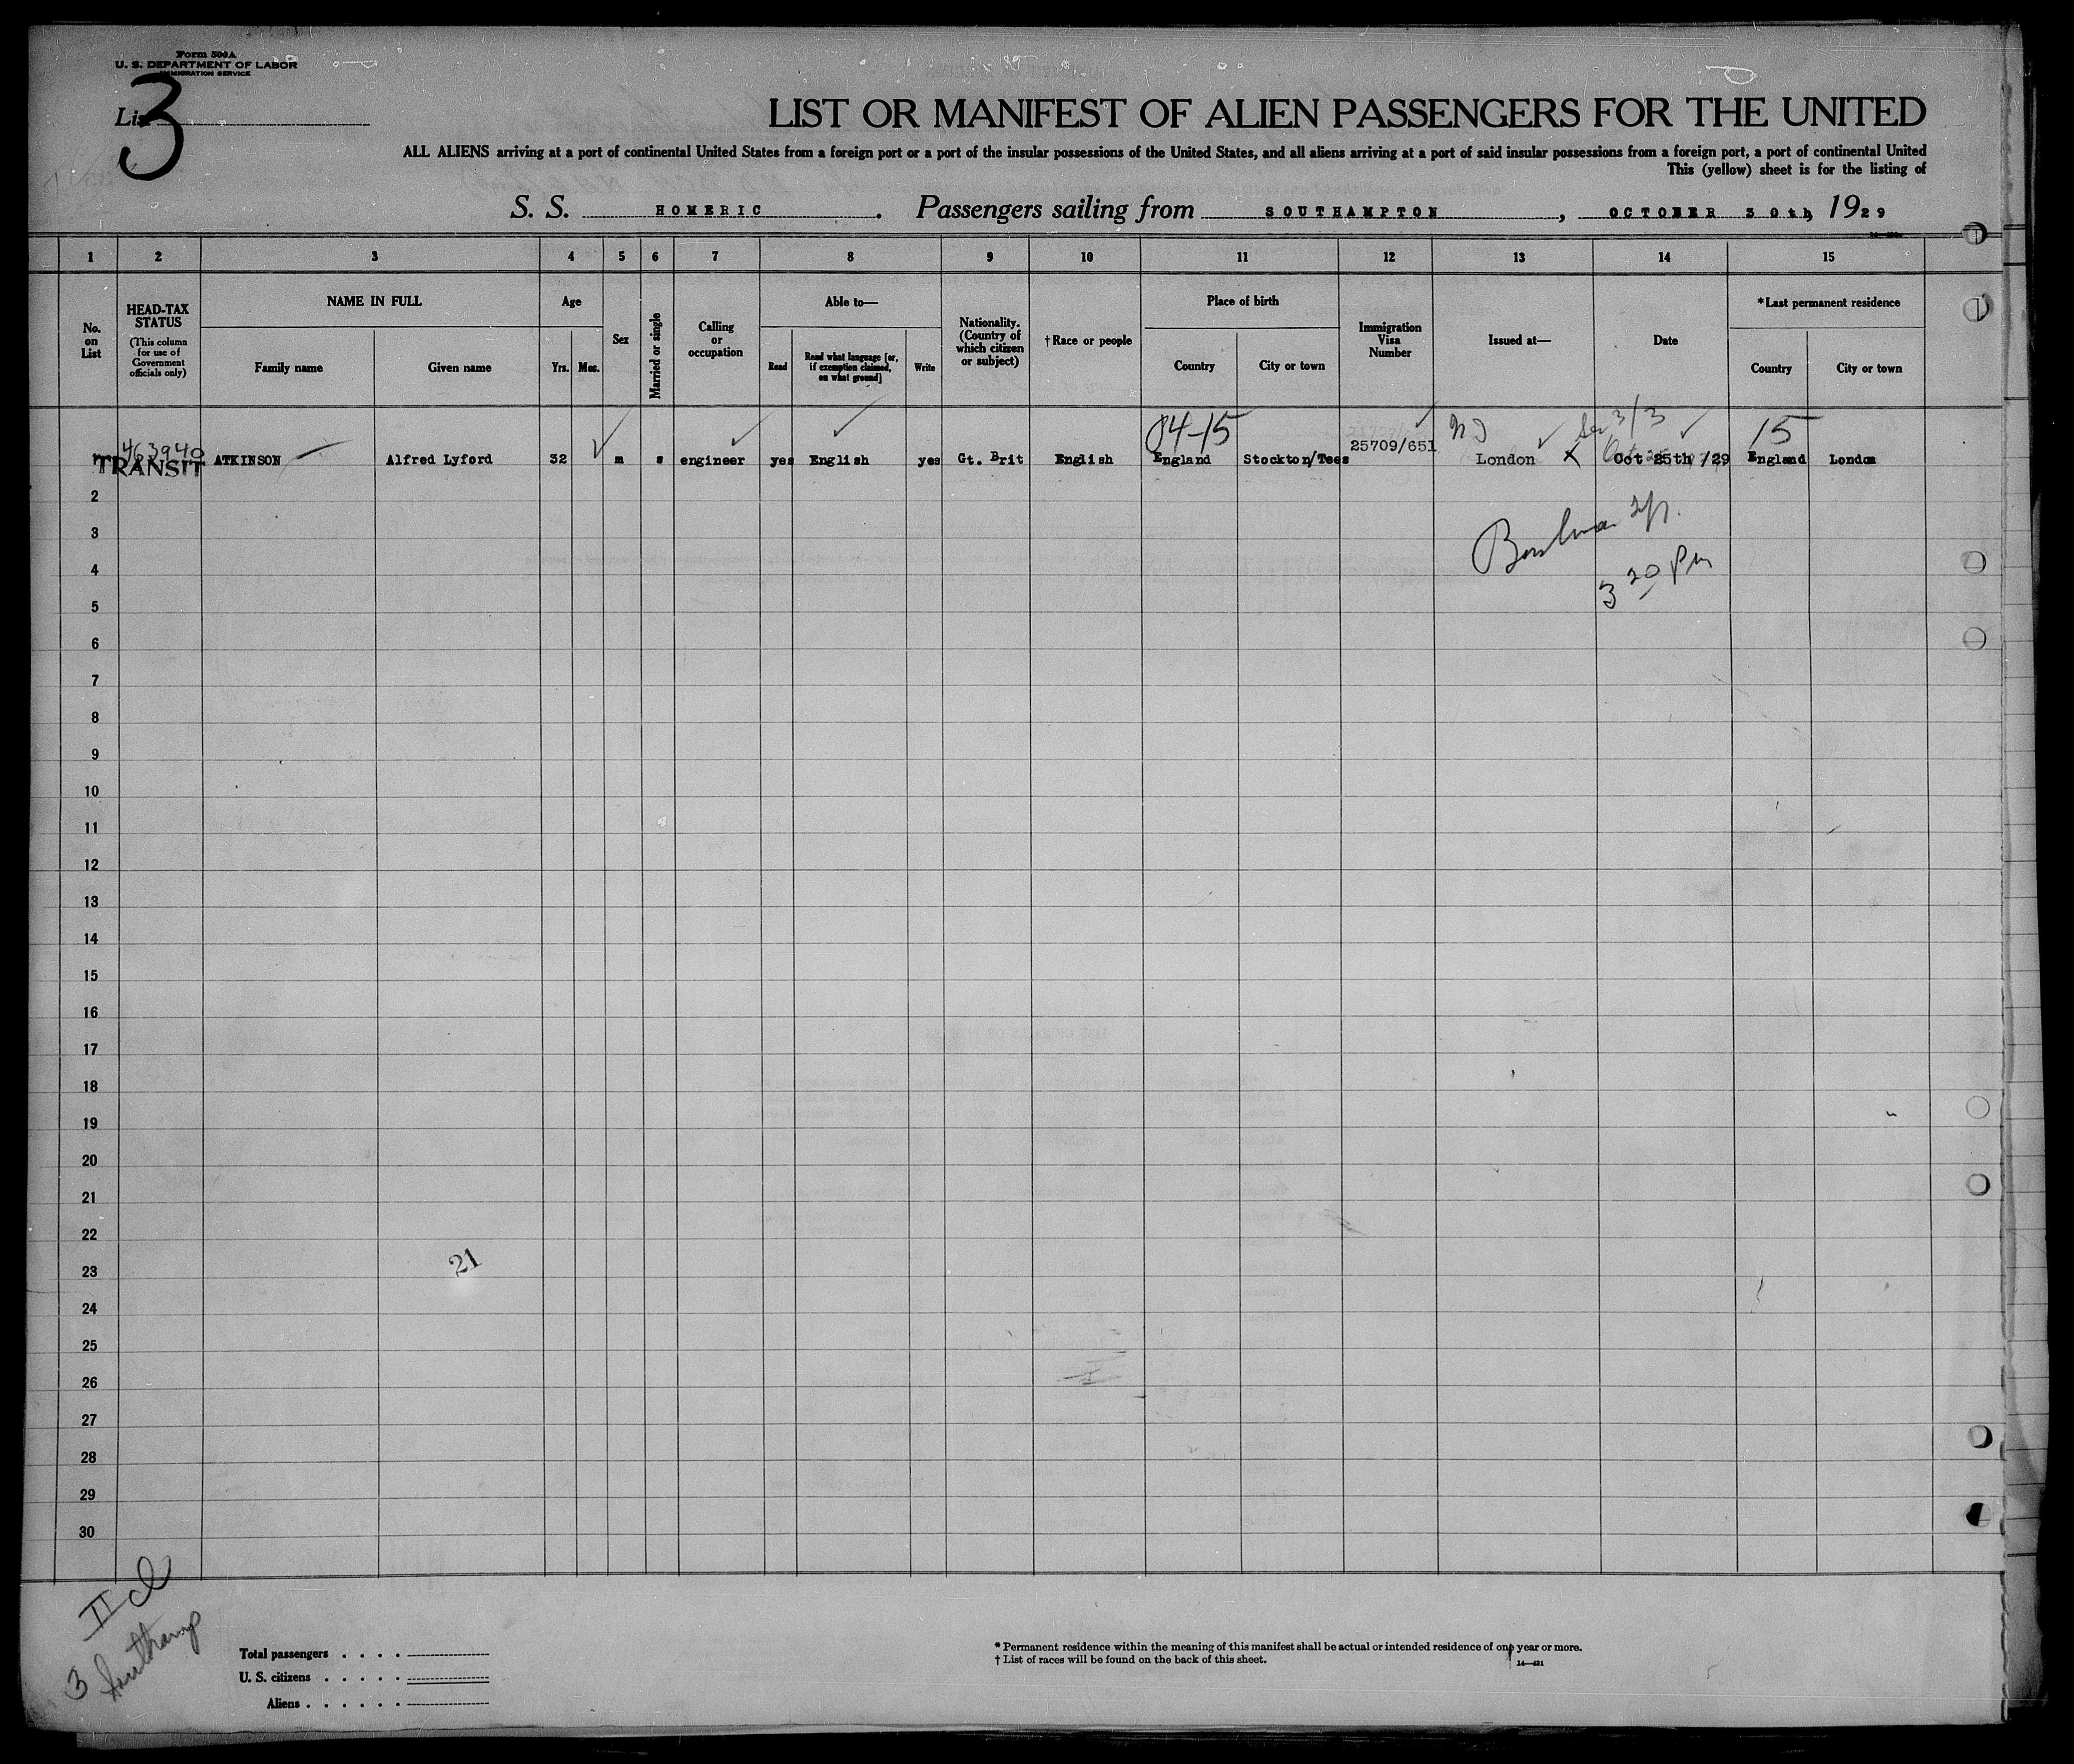 Form 500A
U. S. DEPARTMENT OF LABOR
IMMIGRATION SERVICE
List 3
LIST OR MANIFEST OF ALIEN PASSENGERS FOR THE UNITED
ALL ALIENS arriving at a port of continental United States from a foreign port or a port of the insular possessions of the United States, and all aliens arriving at a port of said insular possessions from a foreign port, a port of continental United
This (yellow) sheet is for the listing of
S. S. HOMERIC. Passengers sailing from SOUTHAMPTON, OCTOBER 30th, 1929
1 2 3 4 5 6 7 8 9 10 11 12 13 14 15
No. on List
HEAD-TAX STATUS
(This column for use of Government officials only)
NAME IN FULL
Family name
Given name
Age
Yrs.
Mos.
Sex
Married or single
Calling or occupation
Able to—
Read
Read what language [or, if exemption claimed, on what ground]
Write
Nationality. (Country of which citizen or subject)
†Race or people
Place of birth
Country
City or town
Immigration Visa Number
Issued at—
Date
*Last permanent residence
Country
City or town
463940 04-15 3/3 15
TRANSIT ATKINSON Alfred Lyford 32 m s engineer yes English yes Gt. Brit English England Stockton/Tees 25709/651 London Oct 25th /29 England London
2
3
3 20 Pm
4
5
6
7
8
9
10
11
12
13
14
15
16
17
18
19
20
21
22
21
23
24
25
26
27
28
29
30
II Cl
3 Southamp
Total passengers . . . .
U. S. citizens . . . . .
Aliens . . . . . .
* Permanent residence within the meaning of this manifest shall be actual or intended residence of one year or more.
† List of races will be found on the back of this sheet.
14—431